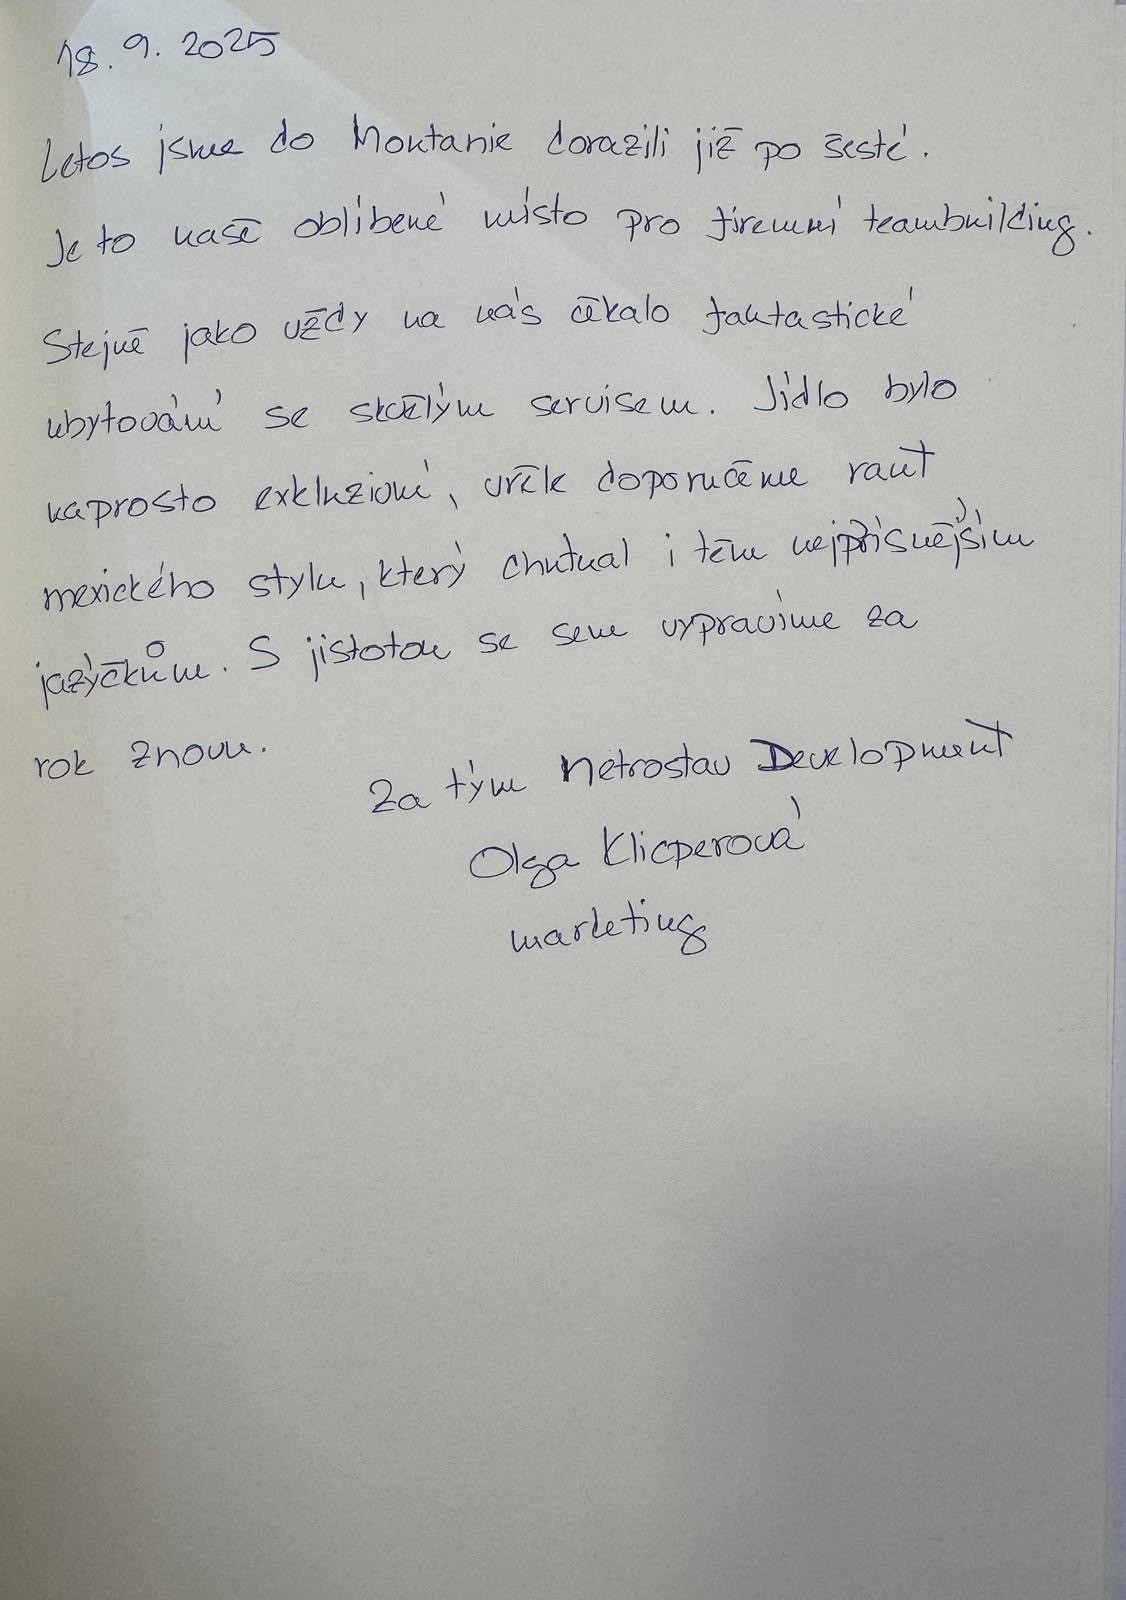 18. 9. 2025
Letos jsme do Montanie dorazili již po šesté.
Je to naše oblíbené místo pro firemní teambuilding.
Stejně jako vždy na nás čekalo fantastické
ubytování se skvělým servisem. Jídlo bylo
naprosto exkluzivní, vřele doporučeme raut
mexického stylu, který chutnal i těm nejpřísnějším
jazýčkům. S jistotou se sem vypravíme za
rok znovu.
Za tým Metrostav Development
Olga Klicperová
marketing